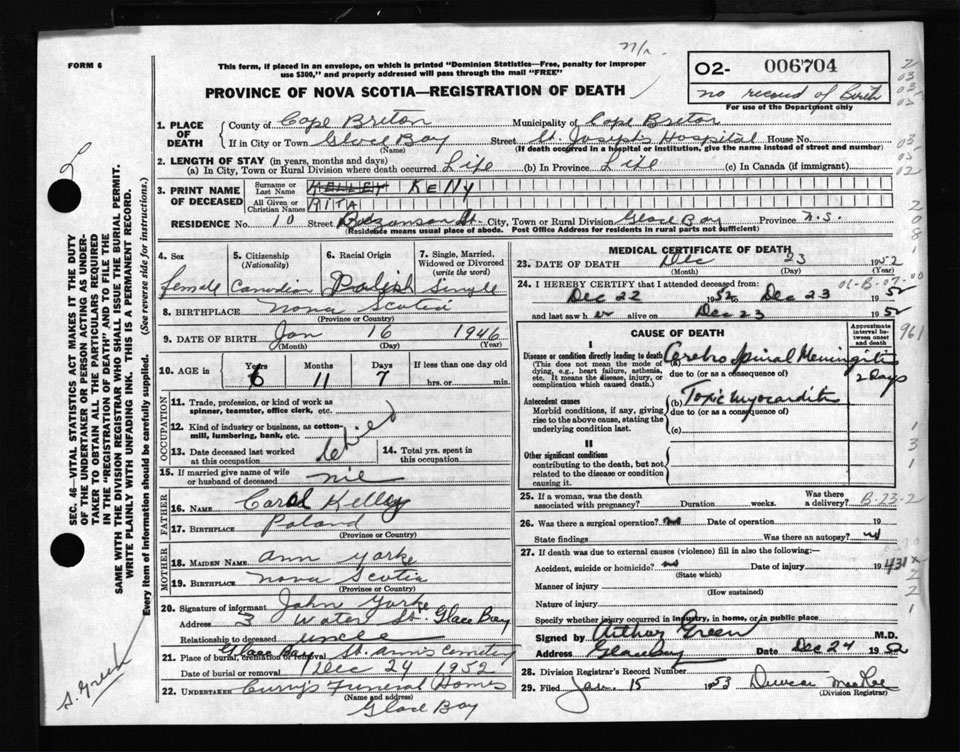 FORM 6
n/r.
This form, if placed in an envelope, on which is printed "Dominion Statistics—Free, penalty for improper
use $300," and properly addressed will pass through the mail "FREE"
O2- 006704
no record of Birth
For use of the Department only
PROVINCE OF NOVA SCOTIA—REGISTRATION OF DEATH
1. PLACE OF DEATH County of Cape Breton Municipality of Cape Breton
If in City or Town Glace Bay (Name) Street St. Joseph's Hospital House No.
(If death occurred in a hospital or institution, give the name instead of street and number)
2. LENGTH OF STAY (in years, months and days)
(a) In City, Town or Rural Division where death occurred Life (b) In Province Life (c) In Canada (if immigrant)
3. PRINT NAME OF DECEASED Surname or Last Name KELLEY KELLY
All Given or Christian Names RITA
RESIDENCE No. 10 Street St. City, Town or Rural Division Glace Bay Province N.S.
(Residence means usual place of abode. Post Office Address for residents in rural parts not sufficient)
4. Sex female
5. Citizenship (Nationality) Canadian
6. Racial Origin Polish
7. Single, Married, Widowed or Divorced (write the word) Single
8. BIRTHPLACE Nova Scotia
(Province or Country)
9. DATE OF BIRTH Jan 16 1946
(Month) (Day) (Year)
10. AGE in Years 6 Months 11 Days 7 If less than one day old
hrs. or min.
OCCUPATION
11. Trade, profession, or kind of work as
spinner, teamster, office clerk, etc.
12. Kind of industry or business, as cotton-
mill, lumbering, bank, etc.
13. Date deceased last worked
at this occupation
14. Total yrs. spent in
this occupation
15. If married give name of wife
or husband of deceased nil
FATHER
16. NAME Carol Kelley
17. BIRTHPLACE Poland
(Province or Country)
MOTHER
18. MAIDEN NAME Ann Yorke
19. BIRTHPLACE Nova Scotia
(Province or Country)
20. Signature of informant John Yorke
Address 3 Water St. Glace Bay
Relationship to deceased uncle
21. Place of burial, cremation or removal Glace Bay St. Ann's Cemetery
Date of burial or removal Dec 24 1952
22. UNDERTAKER Curry's Funeral Homes
(Name and address)
Glace Bay
MEDICAL CERTIFICATE OF DEATH
23. DATE OF DEATH Dec 23 1952
(Month) (Day) (Year)
24. I HEREBY CERTIFY that I attended deceased from:
Dec 22 1952 to Dec 23 1952
and last saw h er alive on Dec 23 1952
CAUSE OF DEATH
Approximate interval between onset and death
I
Disease or condition directly leading to death
(This does not mean the mode of
dying, e.g., heart failure, asthenia,
etc. It means the disease, injury, or
complication which caused death.)
(a) Cerebro Spinal Meningitis
due to (or as a consequence of)
2 Days
Antecedent causes
Morbid conditions, if any, giving
rise to the above cause, stating the
underlying condition last.
(b) Toxic myocarditis
due to (or as a consequence of)
(c)
II
Other significant conditions
contributing to the death, but not
related to the disease or condition
causing it.
25. If a woman, was the death
associated with pregnancy? Duration weeks. Was there
a delivery? B-23-2
26. Was there a surgical operation? no Date of operation 19
State findings Was there an autopsy? no
27. If death was due to external causes (violence) fill in also the following:—
Accident, suicide or homicide? no Date of injury 19
(State which)
Manner of injury
(How sustained)
Nature of injury
Specify whether injury occurred in industry, in home, or in public place
Signed by Arthur Green M.D.
Address Glace Bay Date Dec 24 1952
28. Division Registrar's Record Number
29. Filed Jan. 15 1953 Duncan MacRae
(Division Registrar)
SEC. 46—VITAL STATISTICS ACT MAKES IT THE DUTY
OF THE UNDERTAKER OR PERSON ACTING AS UNDER-
TAKER TO OBTAIN ALL THE PARTICULARS REQUIRED
IN THE "REGISTRATION OF DEATH" AND TO FILE THE
SAME WITH THE DIVISION REGISTRAR WHO SHALL ISSUE THE BURIAL PERMIT.
WRITE PLAINLY WITH UNFADING INK. THIS IS A PERMANENT RECORD.
Every item of information should be carefully supplied. (See reverse side for instructions.)